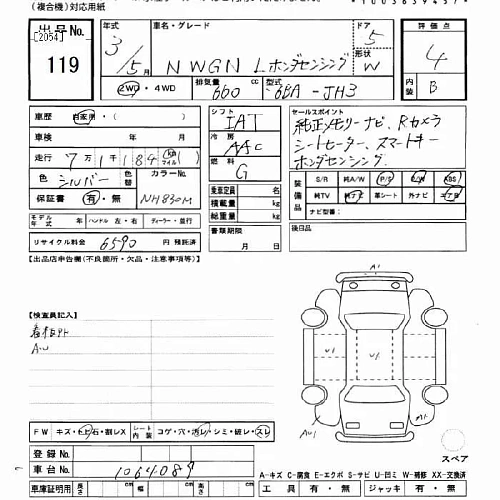 (複合機)対応用紙
出品No. [2054] 119
年式 3/5月
車名・グレード NWGN Lホンダセンシング
ドア 5
形状 W
評価点 4
内装 B
2WD・4WD
排気量 660
型式 6BA-JH3
車歴 自家用 ( )
車検 年 月
走行 7万1千184 km マイル ( )
色 シルバー
色替
カラーNo. NH830M
保証書 有・無
モデル年式 年 ハンドル 左・右 ディーラー・並行
リサイクル料金 6590 円 預託済
シフト IAT
冷房 AAC
燃料 G
乗車定員 名
積載量 kg
総重量 kg
書類期限 月 日
セールスポイント
純正メモリーナビ、Rカメラ
シートヒーター、スマートキー
ホンダセンシング
装備品 S/R 純A/W P/S P/W ABS
純TV 純ナビ 革シート 外ナビ エアB
ナビ型番( )
後日品
[出品店申告欄(不良箇所・欠品・注意事項等)]
[検査員記入]
看板アト
AW
A1
U1
U1
AW1
A1
スペア
FW キズ・ヒビ・石・割レX シート内装 コゲ・穴・汚レ・シミ・破レ・スレ
登録No.
車台No. 1064089
車庫証明用 長さ cm 幅 cm 高さ cm
A-キズ C-腐食 E-エクボ S-サビ U-凹ミ W-補修 XX-交換済
工具 有・無 ジャッキ 有・無